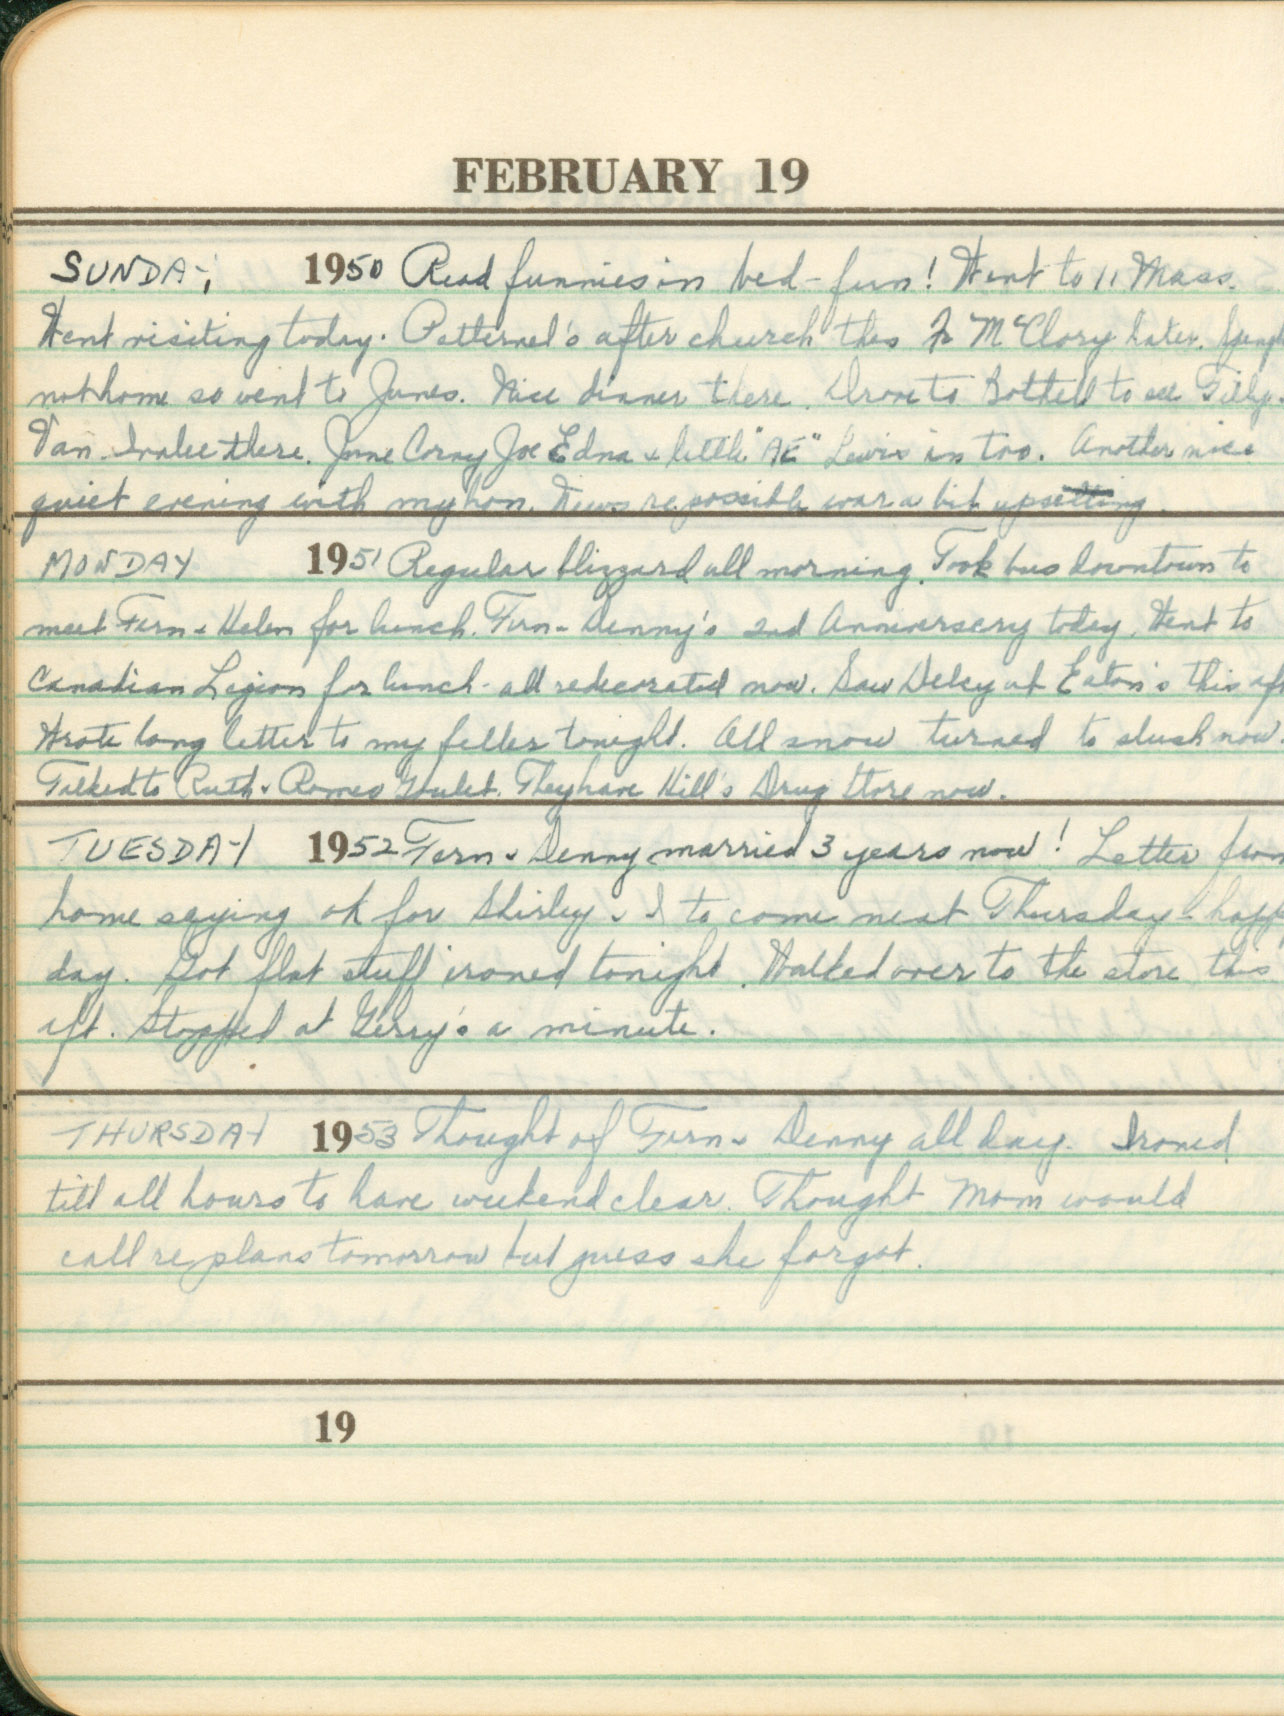 FEBRUARY 19
SUNDAY, 1950 Read funnies in bed - fun! Went to 11 Mass.
Went visiting today. Patternel's after church then Fr McClory later.
not home so went to Junes. Nice dinner there. Drove to Bothell to see Gilly.
Van. there. June Corny Joe Edna & little "AE" Lewis in too. Another nice
quiet evening with my hon. News re possible war a bit upsetting.
MONDAY 1951 Regular blizzard all morning. Took bus downtown to
meet Fern & Helen for lunch. Fern & Denny's 2nd Anniversary today. Went to
Canadian Legion for lunch - all redecorated now. Saw Delcy at Eaton's this aft
Wrote long letter to my feller tonight. All snow turned to slush now.
Talked to Ruth & Romeo Goulet. They have Hill's Drug Store now.
TUESDAY 1952 Fern & Denny married 3 years now! Letter from
home saying ok for Shirley & I to come next Thursday - happy
day. Got flat stuff ironed tonight. Walked over to the store this
aft. Stopped at Gerry's a minute.
THURSDAY 1953 Thought of Fern & Denny all day. Ironed
till all hours to have weekend clear. Thought Mom would
call re plans tomorrow but guess she forgot.
19